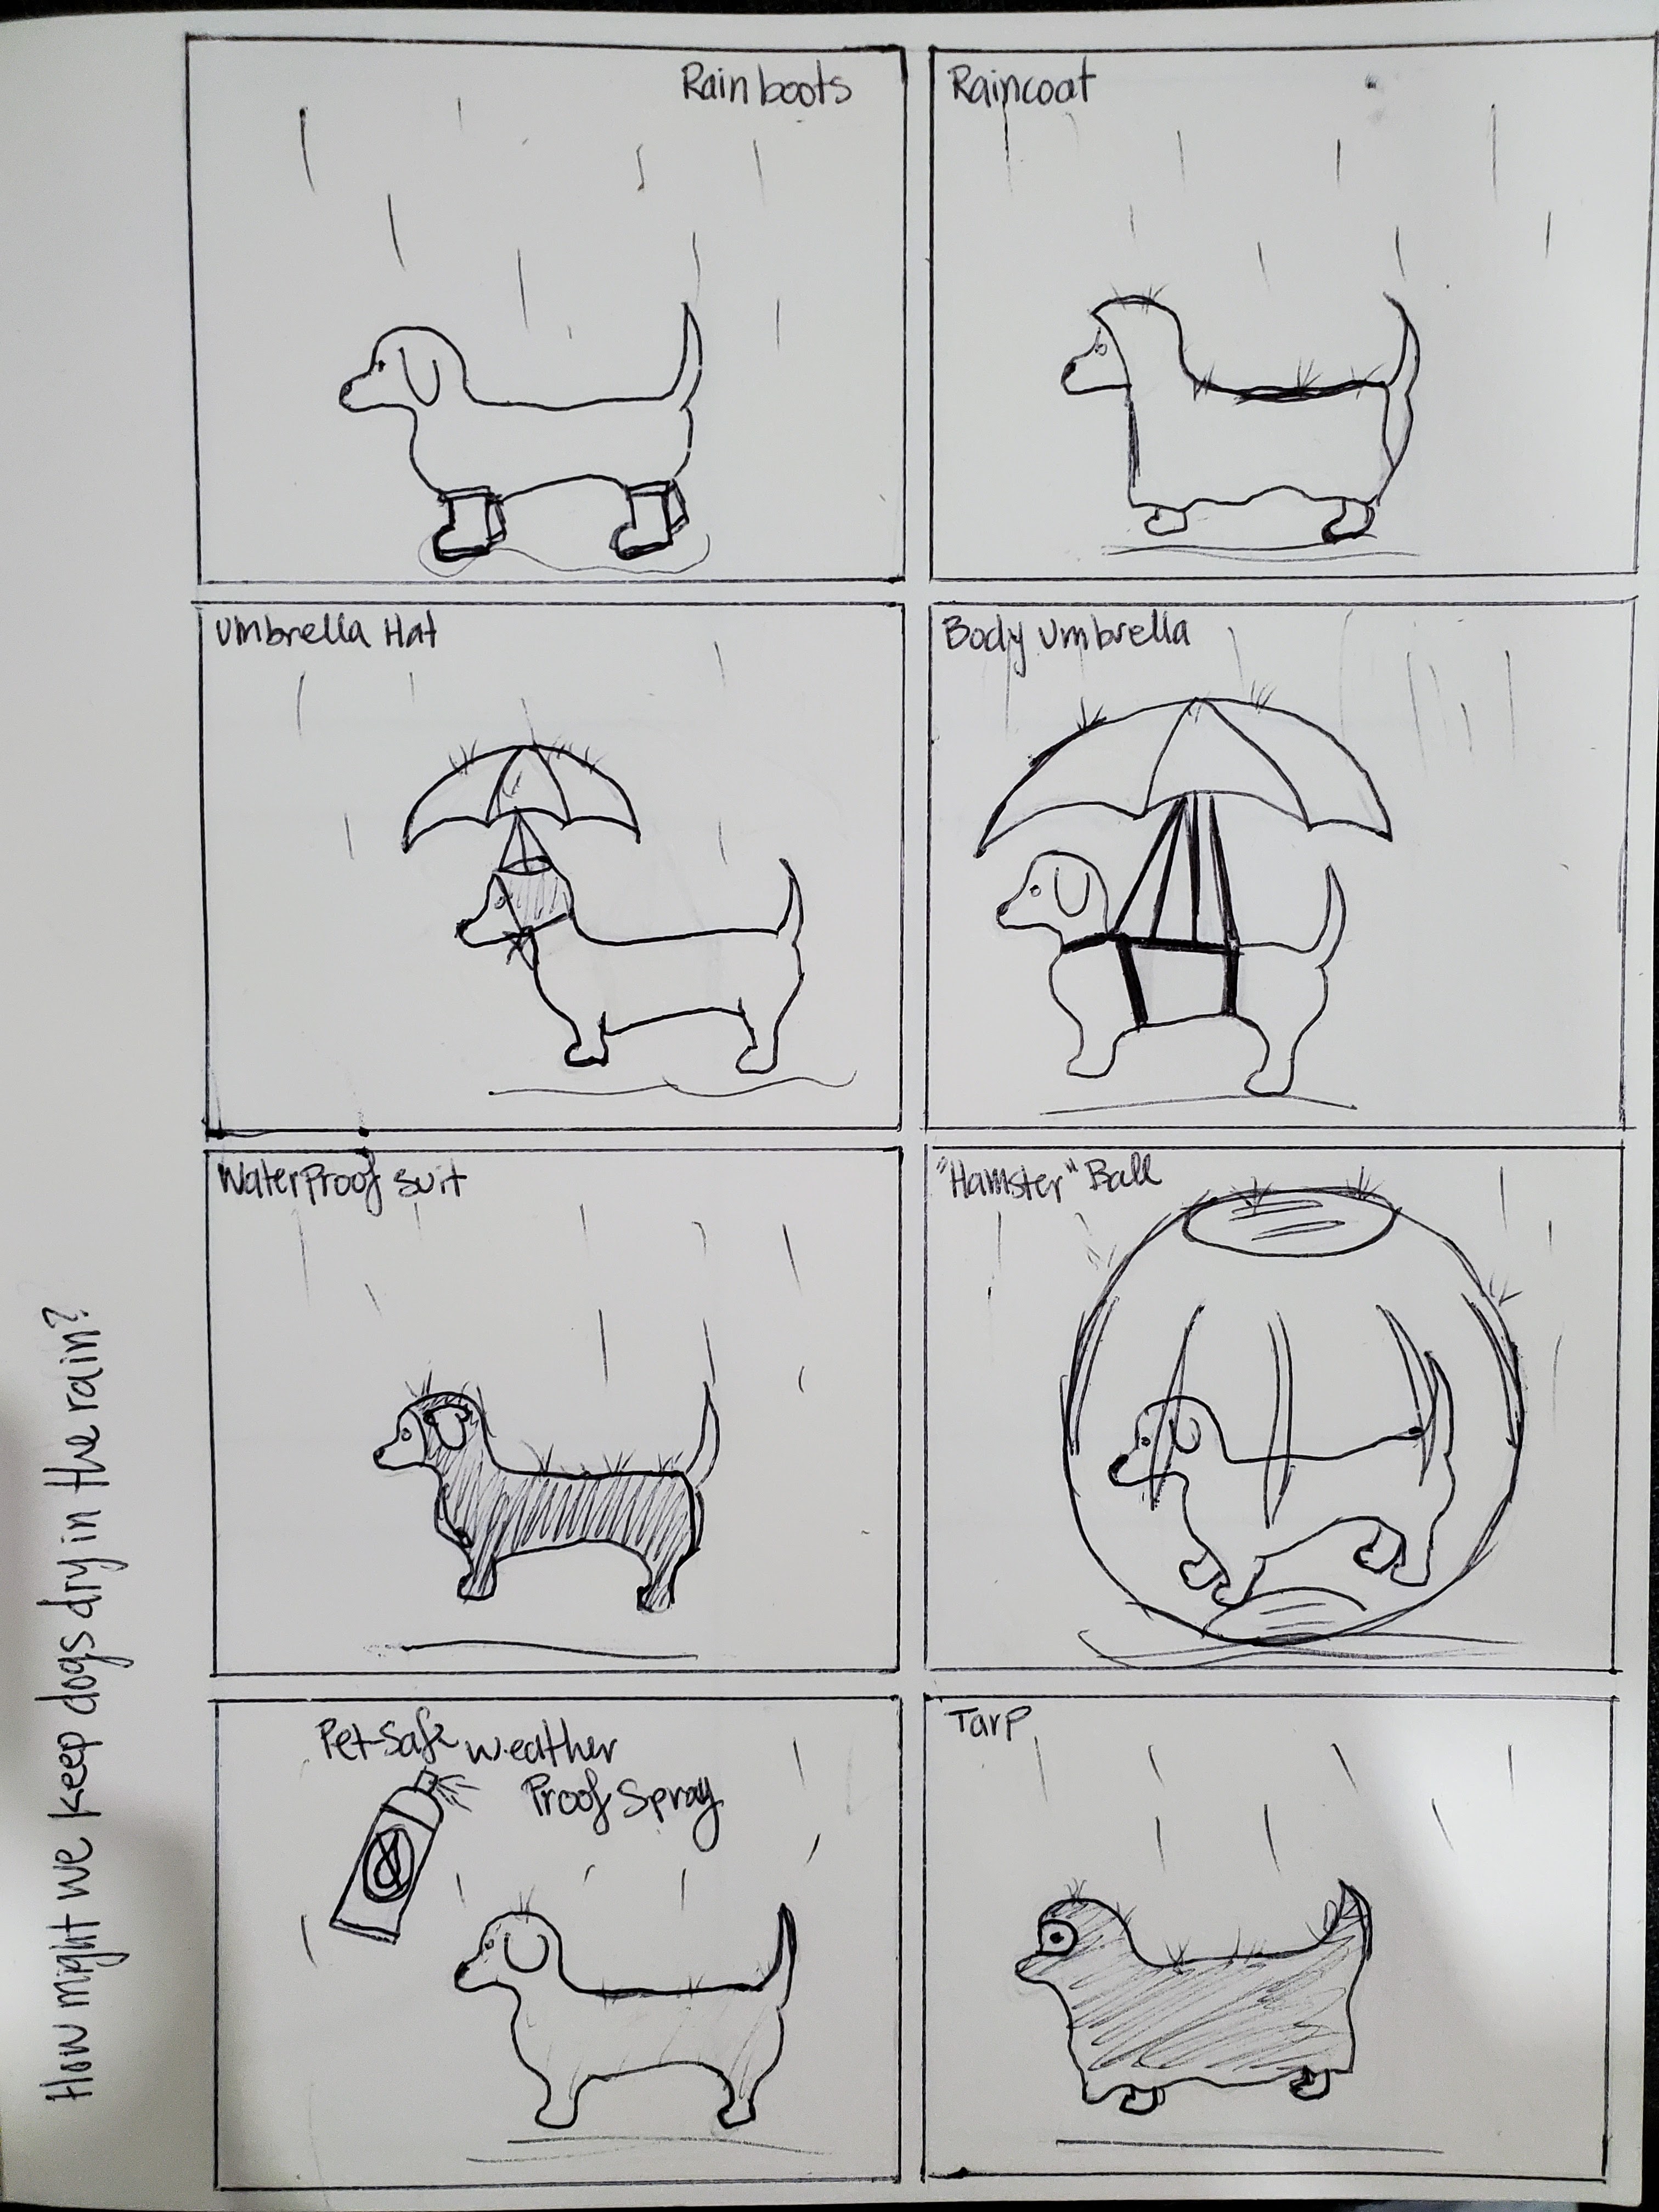 How might we keep dogs dry in the rain?
Rain boots
Raincoat
Umbrella Hat
Body Umbrella
WaterProof suit
"Hamster" Ball
Pet-Safe weather
Proof Spray
Tarp